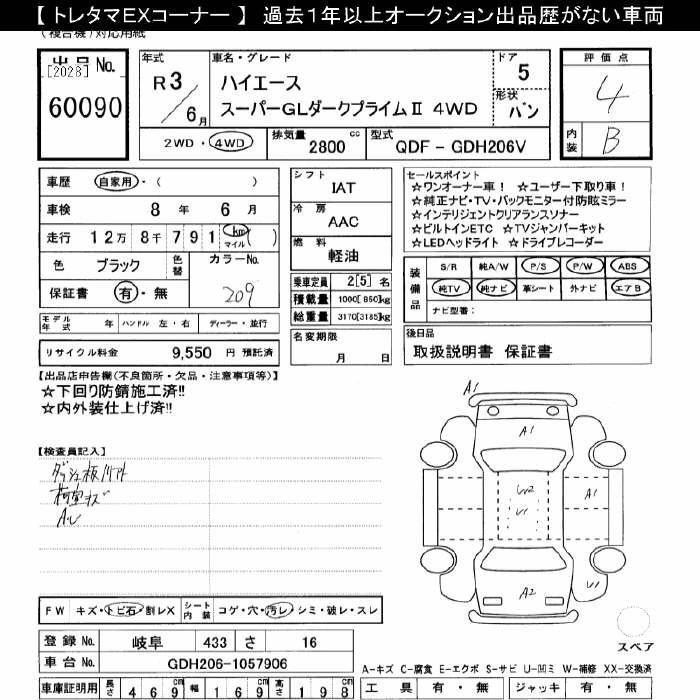 【 トレタマEXコーナー 】 過去1年以上オークション出品歴がない車両
(複合機)対応用紙
出品No.
[2028]
60090
年式
R 3 / 6 月
車名・グレード
ハイエース
スーパーGLダークプライムⅡ 4WD
ドア
5
形状
バン
2WD ・ 4WD
排気量 2800 cc
型式 QDF - GDH206V
評価点
4
内装 B
車歴 自家用・( )
車検 8 年 6 月
走行 12万 8千 7 9 1 km マイル ( )
色 ブラック 色替
カラーNo. 209
保証書 有・無
シフト IAT
冷房 AAC
燃料 軽油
乗車定員 2[5] 名
積載量 1000[ 850]kg
総重量 3170[3185]kg
名変期限 月 日
セールスポイント
☆ワンオーナー車! ☆ユーザー下取り車!
☆純正ナビ・TV・バックモニター付防眩ミラー
☆インテリジェントクリアランスソナー
☆ビルトインETC ☆TVジャンパーキット
☆LEDヘッドライト ☆ドライブレコーダー
装備品
S/R 純A/W P/S P/W ABS
純TV 純ナビ 革シート 外ナビ エアB
ナビ型番:
モデル年式 年 ハンドル 左・右 ディーラー・並行
リサイクル料金 9,550 円 預託済
後日品
取扱説明書 保証書
【出品店申告欄(不良箇所・欠品・注意事項等)】
☆下回り防錆施工済!!
☆内外装仕上げ済!!
【検査員記入】
ダッシュ板
荷室キズ
A1
A1
W2
V1
A1
A2
V1
スペア
FW キズ・トビ石・割レX
シート内装 コゲ・穴・汚レ・シミ・破レ・スレ
登録No. 岐阜 433 さ 16
車台No. GDH206-1057906
車庫証明用 長さ 469 幅 169 高さ 198
A-キズ C-腐食 E-エクボ S-サビ U-凹ミ W-補修 XX-交換済
工具 有・無 ジャッキ 有・無